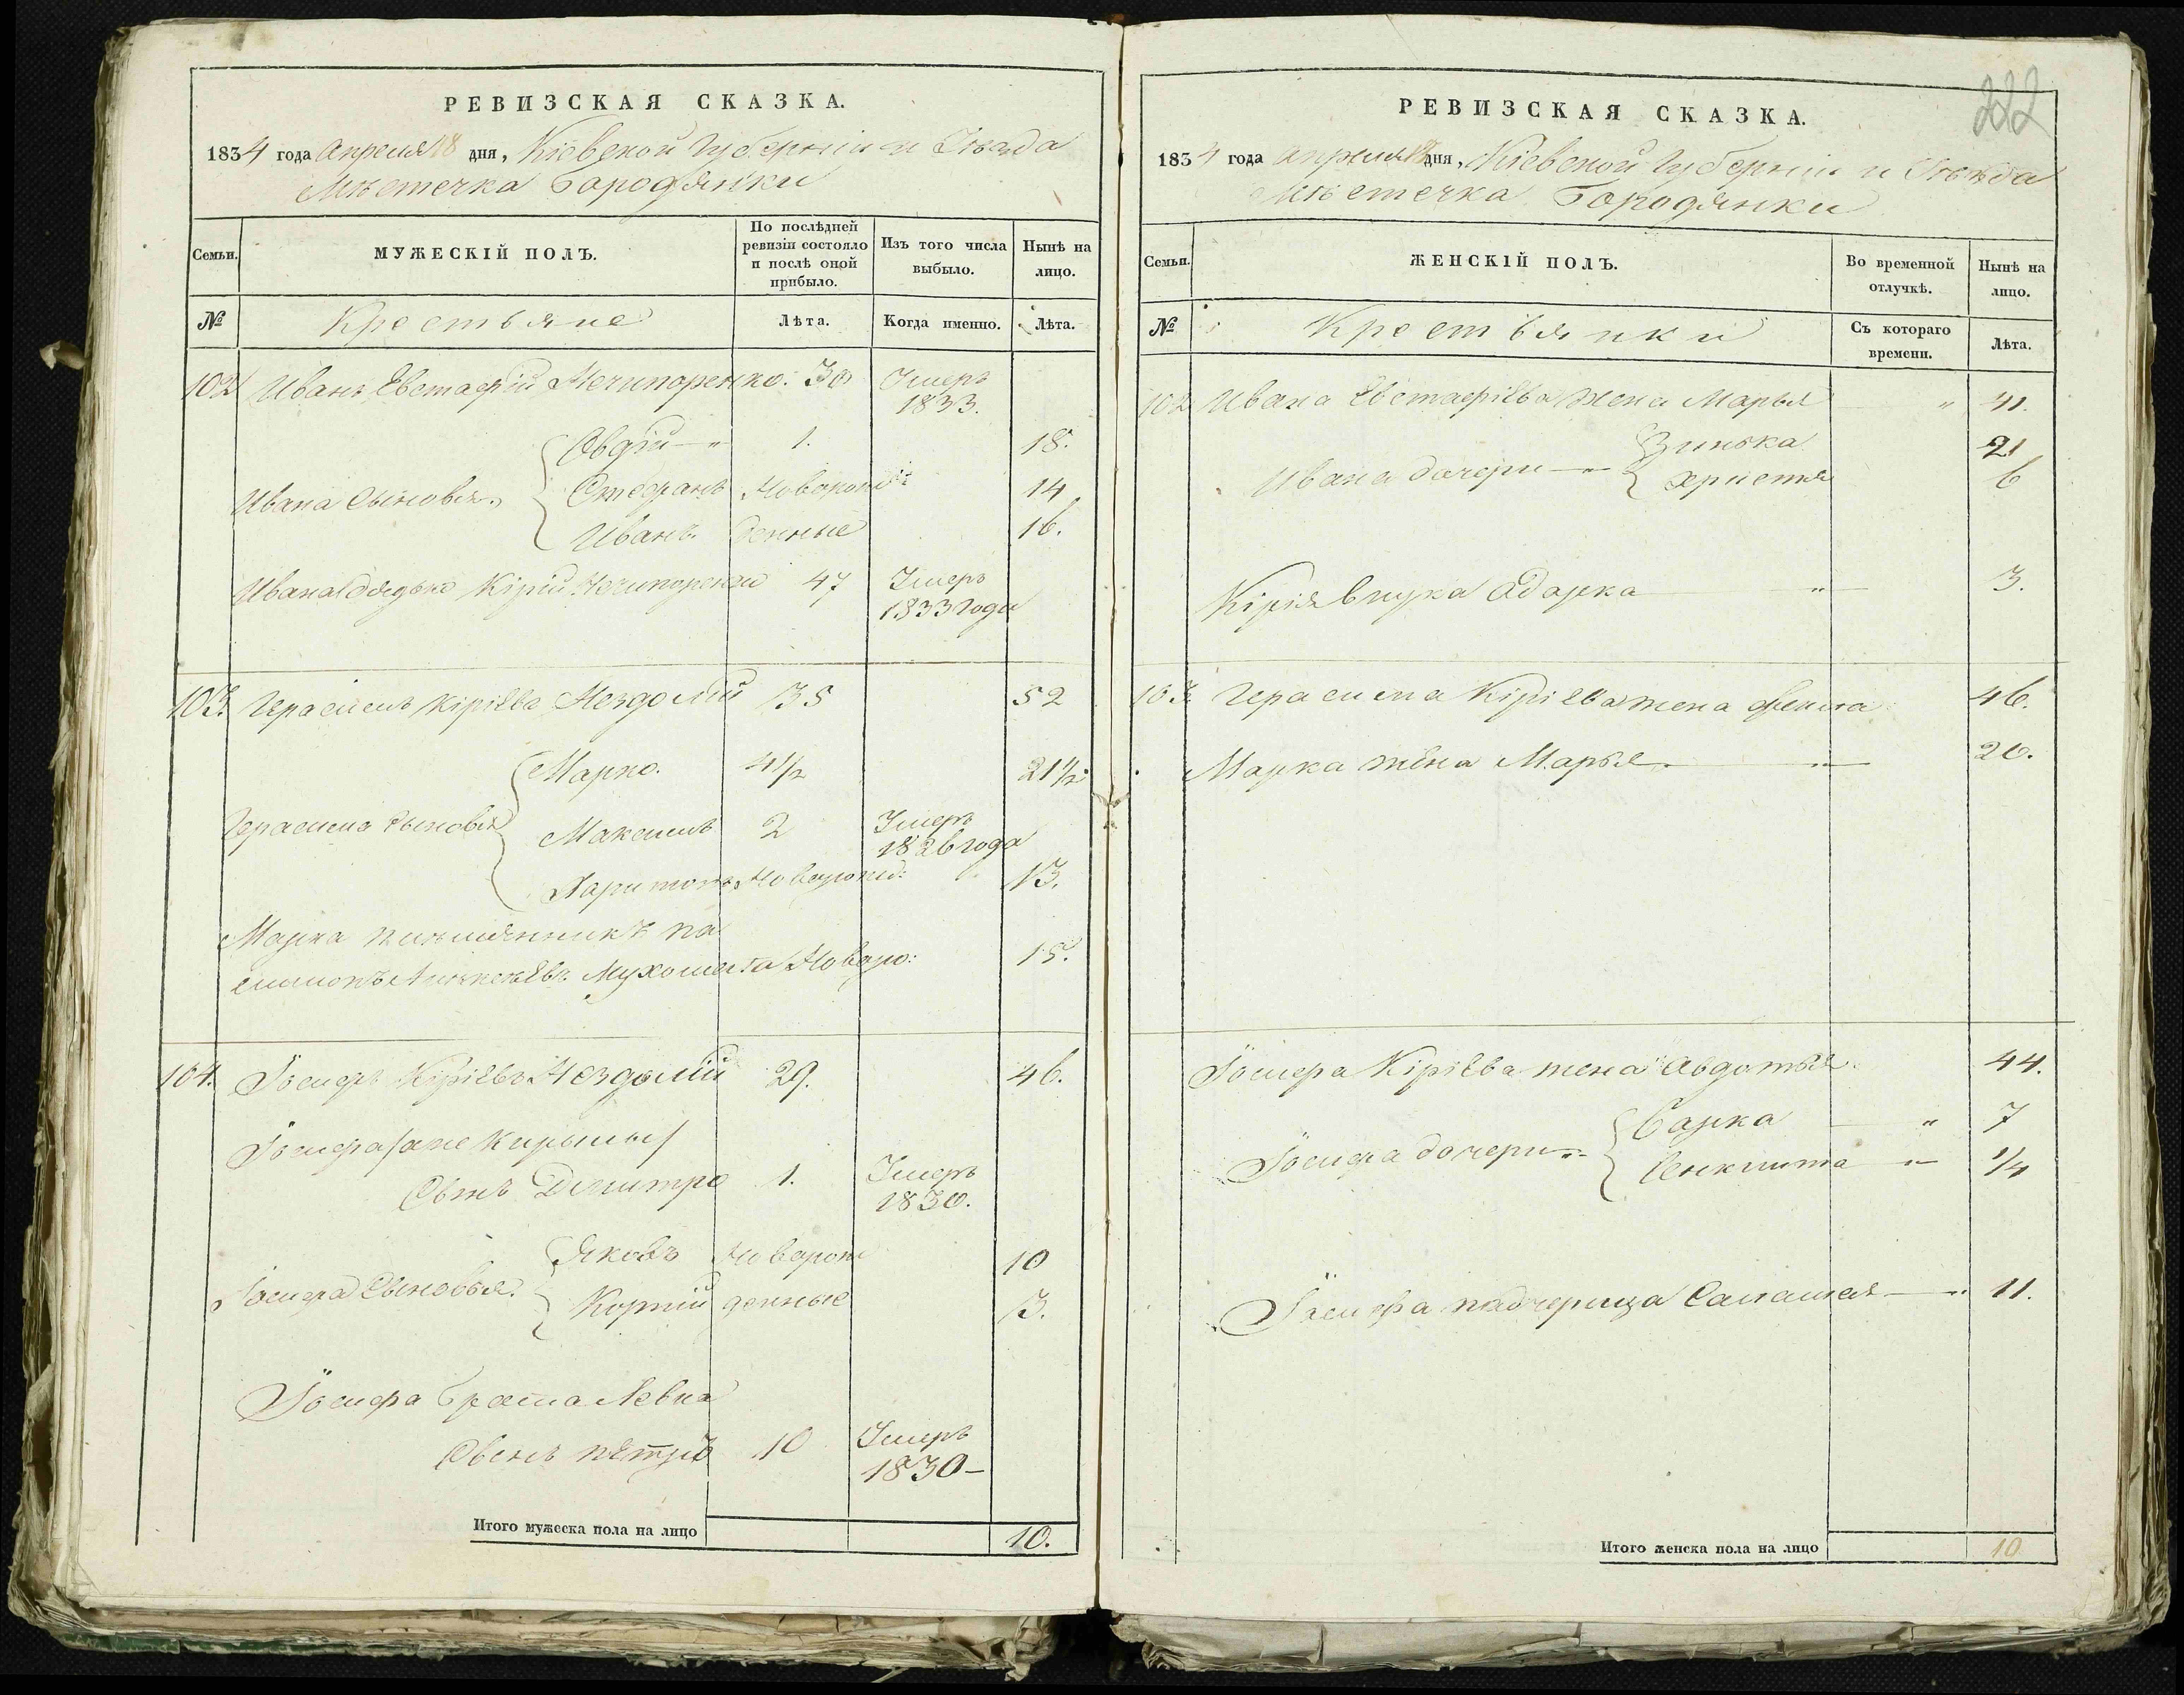 РЕВИЗСКАЯ СКАЗКА.
1834 года апреля 18 дня, Кіевской Губерніи и Уезда
Мѣстечка Бородянки
Семьи.
МУЖЕСКІЙ ПОЛЪ.
По послѣдней ревизіи состояло и послѣ оной прибыло.
Изъ того числа выбыло.
Нынѣ на лицо.
№
Крестьяне
Лѣта.
Когда именно.
Лѣта.
102 Иванъ Евстафій Нечипоренко. 30 Умеръ 1833.
Овдій 1. 18.
Ивана Сыновья Стефанъ Новорож 14
Иванъ денные 16.
Ивана дядько Кірій Нечипоренко 47 Умеръ 1833 года
103. Герасимъ Кіріевъ Нездолій 35 52
Марко. 4 1/2 21 1/2
Герасима сыновья Максимъ 2 Умеръ 1826 года
Харитонъ Новорожд: 13.
Марка племянникъ
Мухомета Новоро: 15.
104. Іосифъ Кіріевъ Нездолій 29. 46.
Іосифа
Сынъ Дмитро 1. Умеръ 1830.
Яковъ Новорож 10
Іосифа Сыновья Корній денные 3.
Іосифа брата Левка
Сынъ Петро 10 Умеръ 1830
Итого мужеска пола на лицо 10.
222
РЕВИЗСКАЯ СКАЗКА.
1834 года апреля 18 дня, Кіевской Губерніи и Уезда
Мѣстечка Бородянки
Семьи.
ЖЕНСКІЙ ПОЛЪ.
Во временной отлучкѣ.
Нынѣ на лицо.
№
Крестьянки
Съ котораго времени.
Лѣта.
102 Ивана Евстафіева жена Марья " 41.
Зинька 21
Ивана дочери Христя 6
Кірія внука Одарка " 3.
103 Герасима Кіріева жена 46.
Марка жена Марья 20.
Іосифа Кіріева жена Авдотья 44.
Варка " 7
Іосифа дочери 1/4
Іосифа падчерица 11.
Итого женска пола на лицо 10